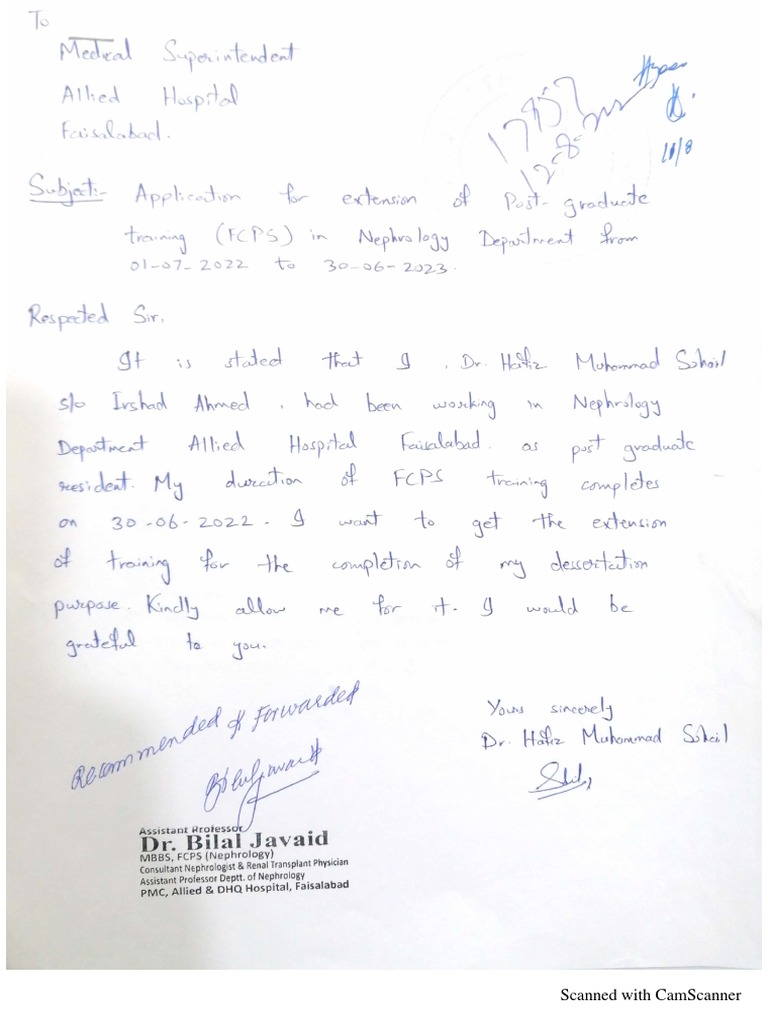 To
Medical Superintendent
Allied Hospital
Faisalabad.
17857
12-8-
11/8
Subject:- Application for extension of Post-graduate
training (FCPS) in Nephrology Department from
01-07-2022 to 30-06-2023.
Respected Sir.
It is stated that I, Dr. Hafiz Muhammad Sohail
s/o Irshad Ahmed, had been working in Nephrology
Department Allied Hospital Faisalabad. as post graduate
resident. My duration of FCPS training completes
on 30-06-2022. I want to get the extension
of training for the completion of my dessertation
purpose. Kindly allow me for it. I would be
grateful to you.
Recommended & Forwarded
Yours sincerely
Dr. Hafiz Muhammad Sohail
Assistant Professor
Dr. Bilal Javaid
MBBS, FCPS (Nephrology)
Consultant Nephrologist & Renal Transplant Physician
Assistant Professor Deptt. of Nephrology
PMC, Allied & DHQ Hospital, Faisalabad
Scanned with CamScanner